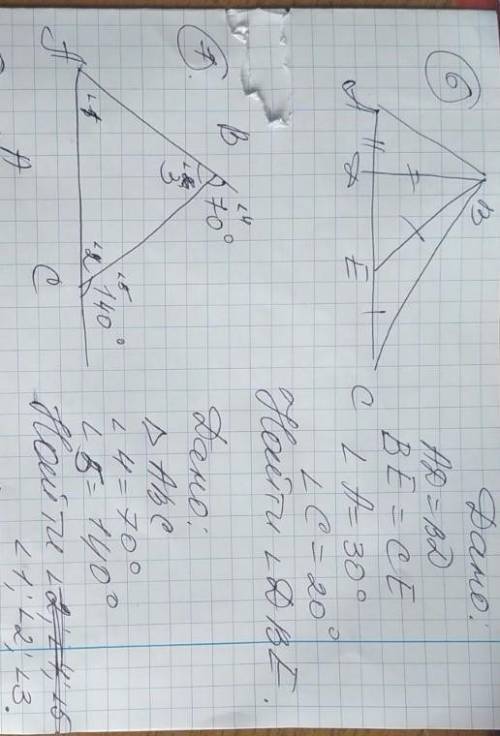 6
A
D
E
C
B
Дано:
AD = BD
BE = CE
∠ A = 30°
∠ C = 20°
Найти ∠ DBE.
7.
A
B
C
∠1
∠2
3
∠4
70°
∠5
140°
Дано:
Δ ABC
∠ 4 = 70°
∠ 5 = 140°
Найти
∠1; ∠2; ∠3.